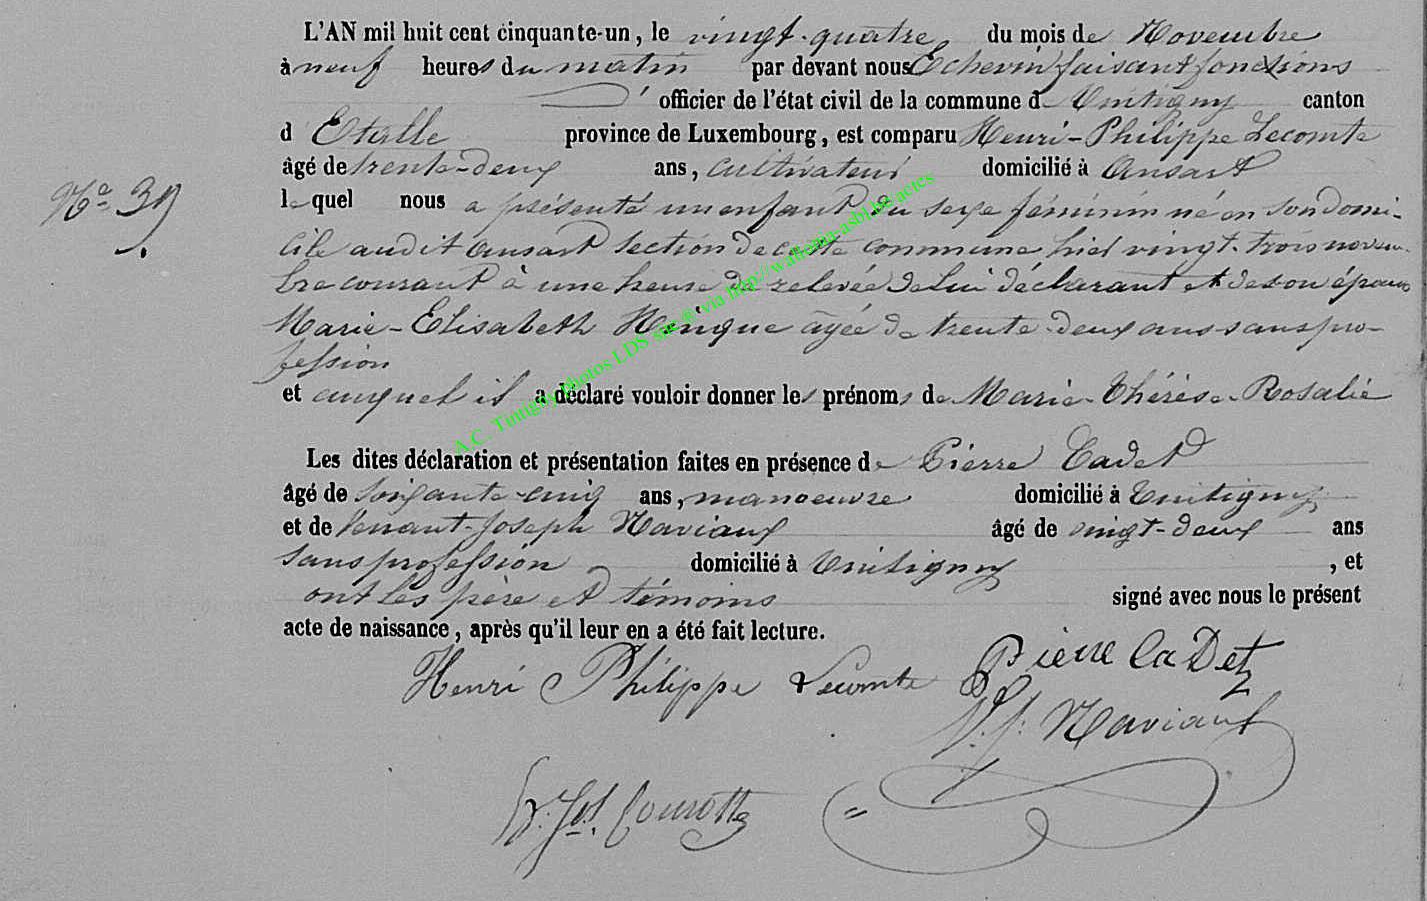 L'AN mil huit cent cinquante-un, le vingt-quatre du mois de Novembre
à neuf heures du matin par devant nous Echevin faisant fonctions
officier de l'état civil de la commune de Tintigny canton
d'Etalle province de Luxembourg, est comparu Henri-Philippe Lecomte
âgé de trente-deux ans, cultivateur domicilié à Ansart
N° 39
lequel nous a présenté un enfant du sexe féminin né en son domi-
cile audit Ansart section de cette commune hier vingt-trois novem-
bre courant à une heure de relevée de lui déclarant et de son épouse
Marie-Elisabeth Henique âgée de trente-deux ans sans pro-
fession
et auquel il a déclaré vouloir donner les prénoms de Marie-Thérèse-Rosalie
A.C. Tintigny photos LDS via http://wallonia-asbl.be/actes
Les dites déclaration et présentation faites en présence de Pierre Cadet
âgé de soixante-cinq ans, manoeuvre domicilié à Tintigny
et de Venant-Joseph Naviaux âgé de vingt-deux ans
sans profession domicilié à Tintigny, et
ont les père et témoins signé avec nous le présent
acte de naissance, après qu'il leur en a été fait lecture.
Henri Philippe Lecomte Pierre CaDet
V. J. Naviaux
Jos.